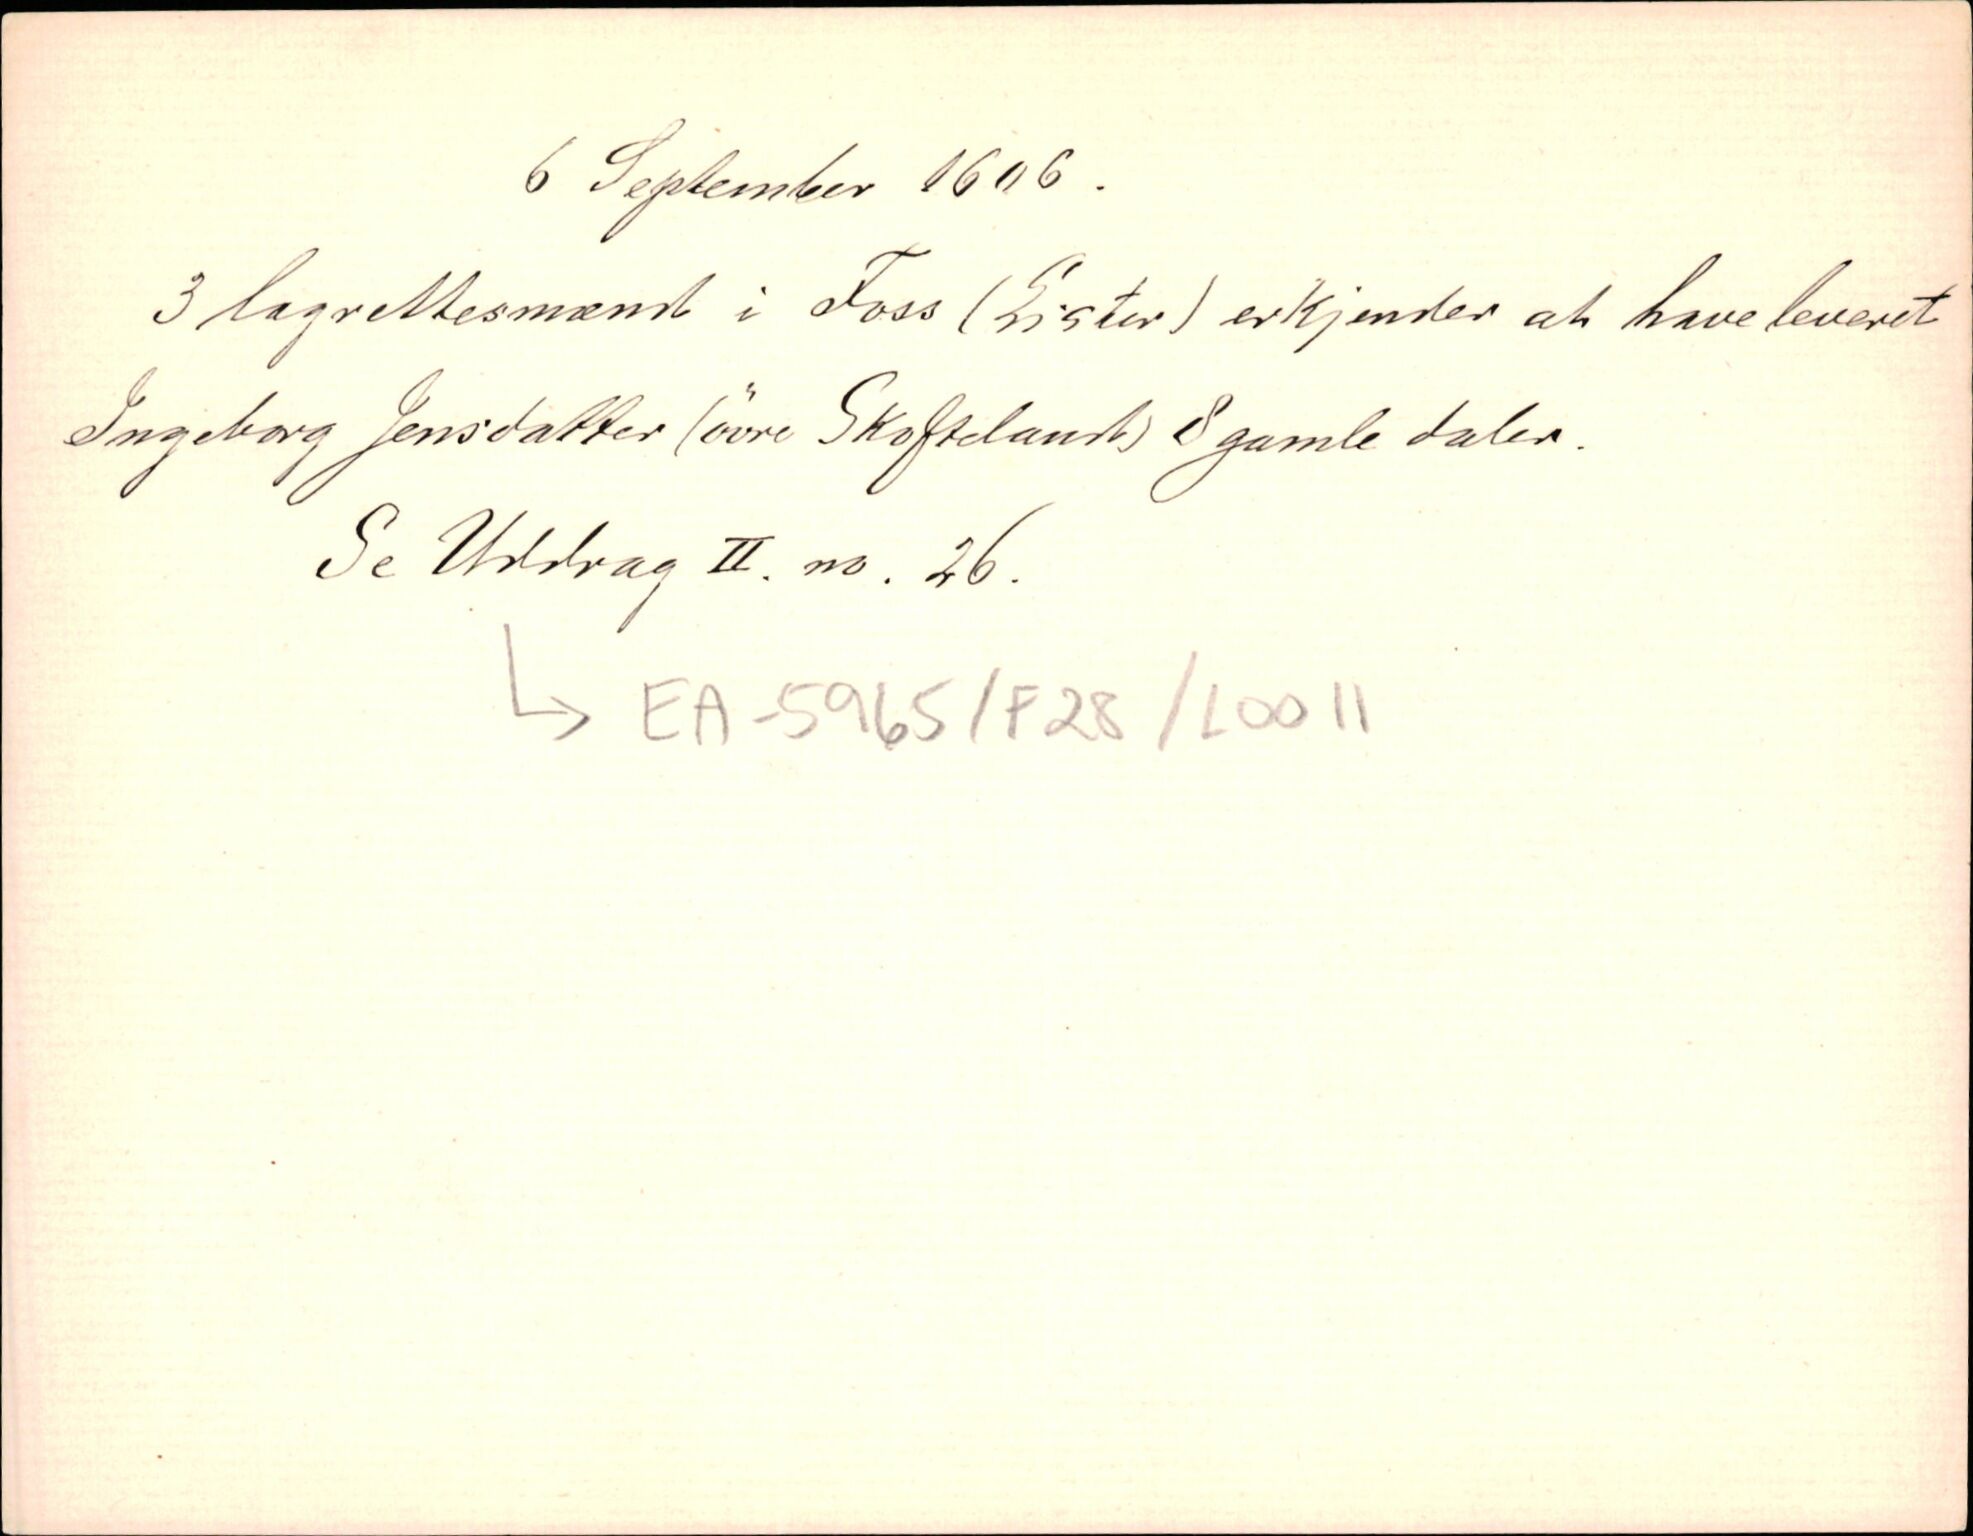 6 September 1606.
3 lagrettesmænd i Foss (Lister) erkjender at have leveret
Ingeborg Jensdatter (övre Skofteland) 8 gamle daler.
Se Uddrag II. no. 26.
↳ EA-5965/F28/L0011